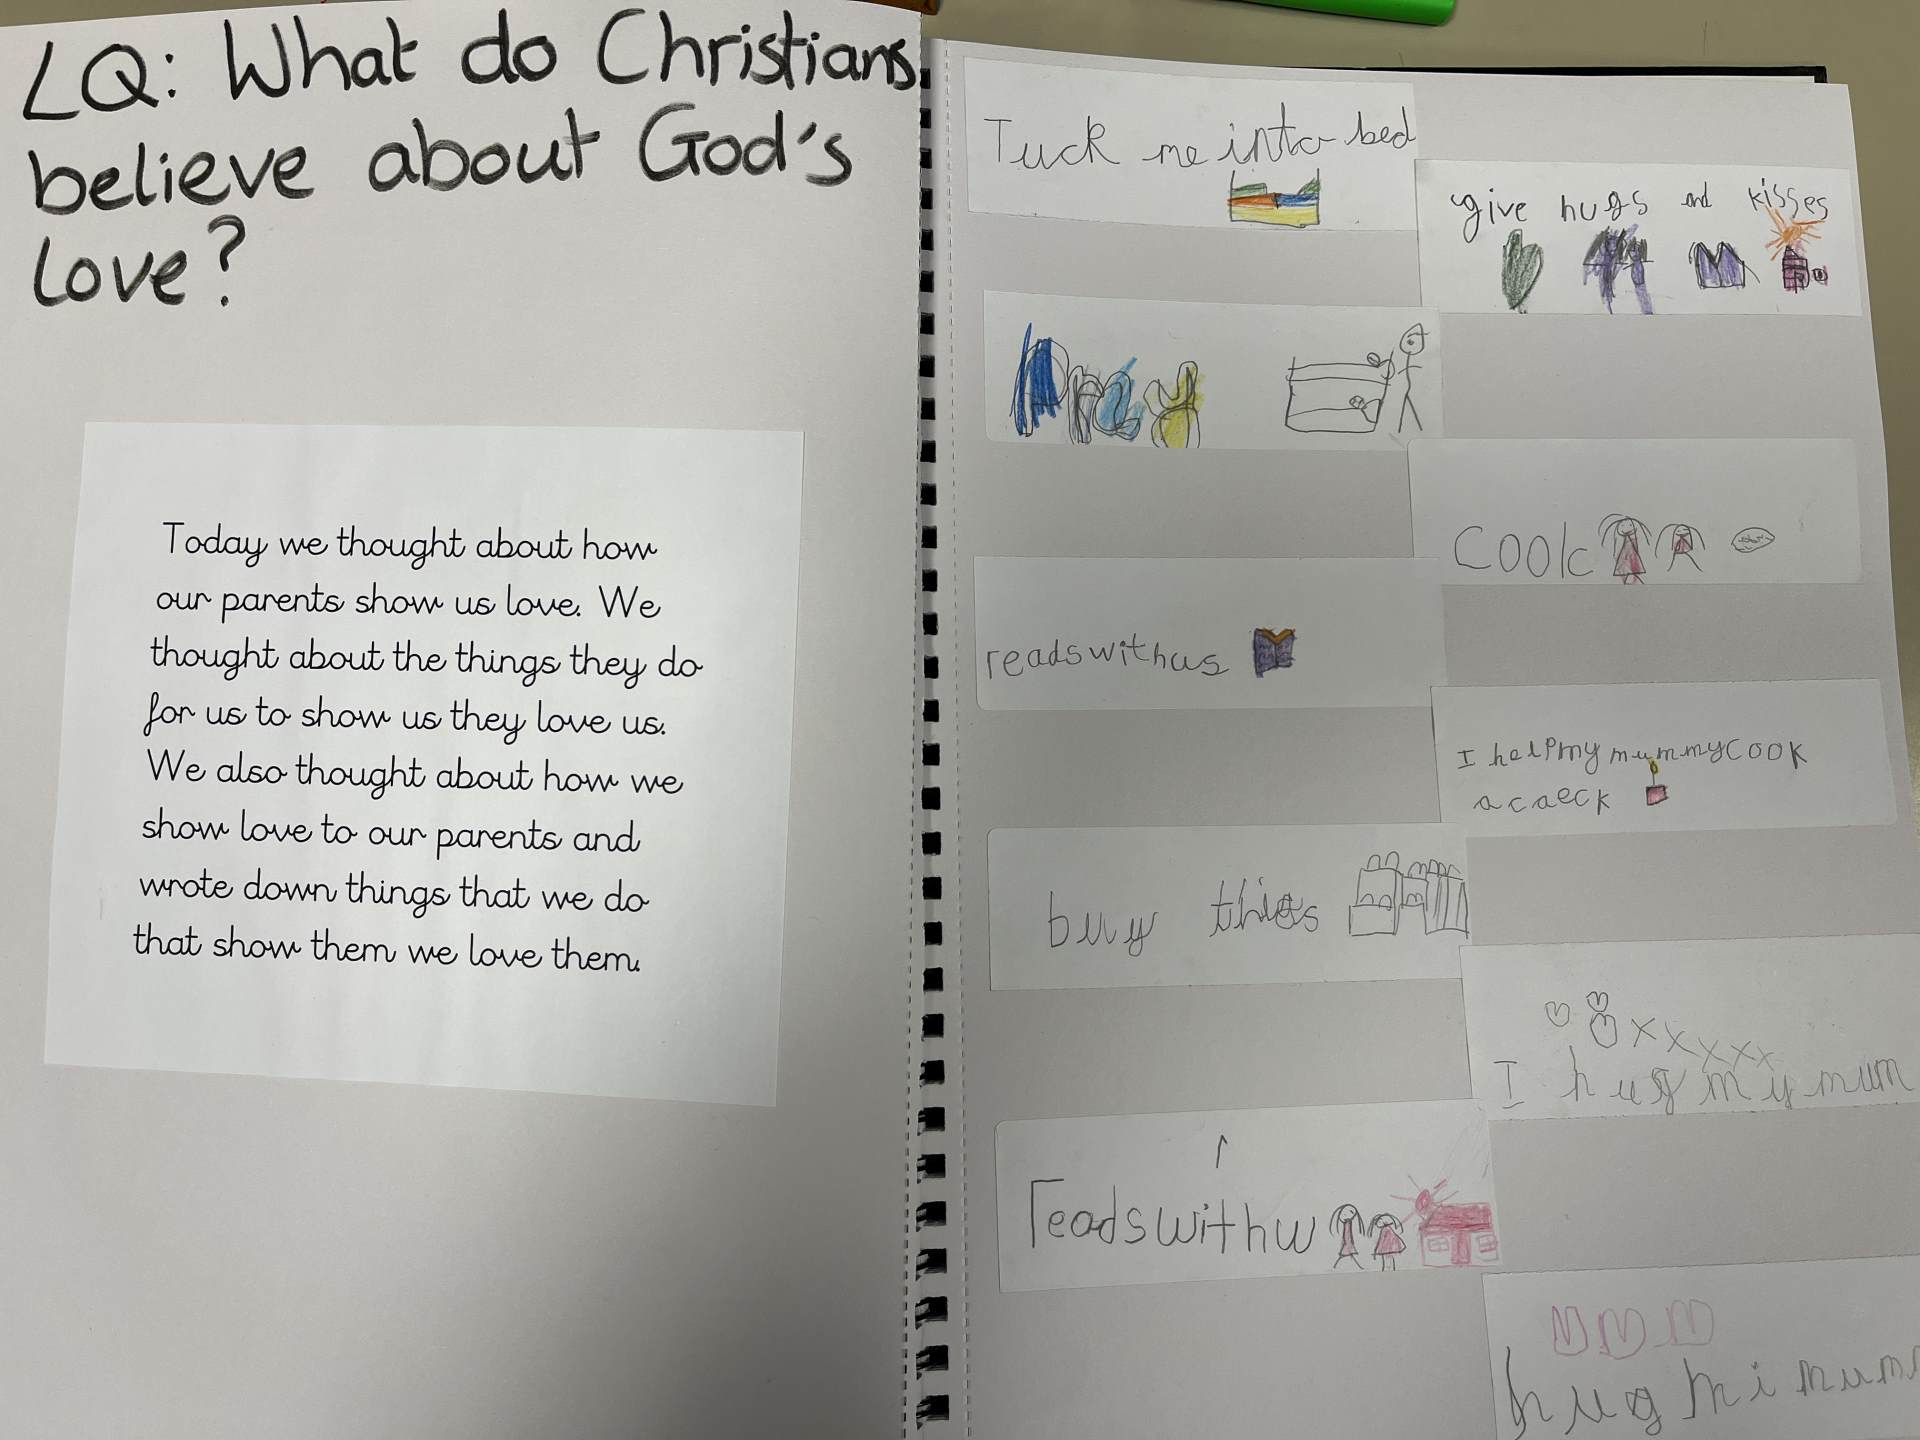 LQ: What do Christians
believe about God's
love?
Today we thought about how
our parents show us love. We
thought about the things they do
for us to show us they love us.
We also thought about how we
show love to our parents and
wrote down things that we do
that show them we love them.
Tuck me into bed
give hugs and kisses
Cook
readswithus
I helpmy mummycook
a caeck
buy
xxxxx
I hug my mum
readswithw
hug mi mum